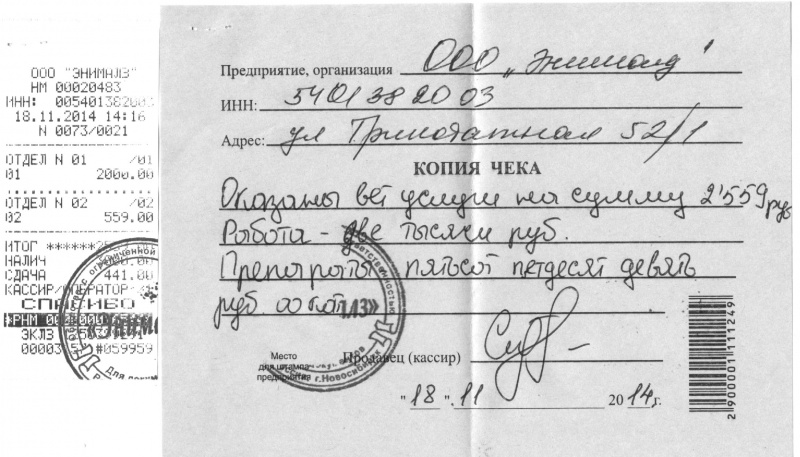 ООО "ЭНИМАЛЗ"
НМ 00020483
ИНН: 005401382003
18.11.2014 14:16
N 0073/0021
ОТДЕЛ N 01 /01
01 2000.00
ОТДЕЛ N 02 /02
02 559.00
ИТОГ ******
НАЛИЧ
СДАЧА 441.00
КАССИР/ОПЕРАТОР
СПАСИБО
ЭКЛЗ
#059959
Предприятие, организация ООО „Энималз"
ИНН: 5401382003
Адрес: ул Тринадатная 52/1
КОПИЯ ЧЕКА
Оказаны вет услуги на сумму 2'559 руб
Работа - две тысячи руб.
Препараты пятьсот петдесят девять
руб. 00 коп
Место
для штампа
предприятия
Продавец (кассир)
г. Новосибирск
"18".11 2014г.
2900001111249